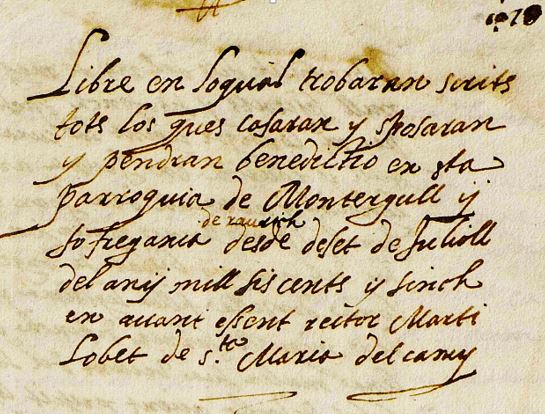 Libre en loqual trobaran scrits
tots los ques casaran y sposaran
y pendran benedictio en sta
parroquia de Montergull y
sofregania de raurich desde deset de Julioll
del any mill siscents y sinch
en auant essent rector Marti
Lobet de s.ta Maria del camy